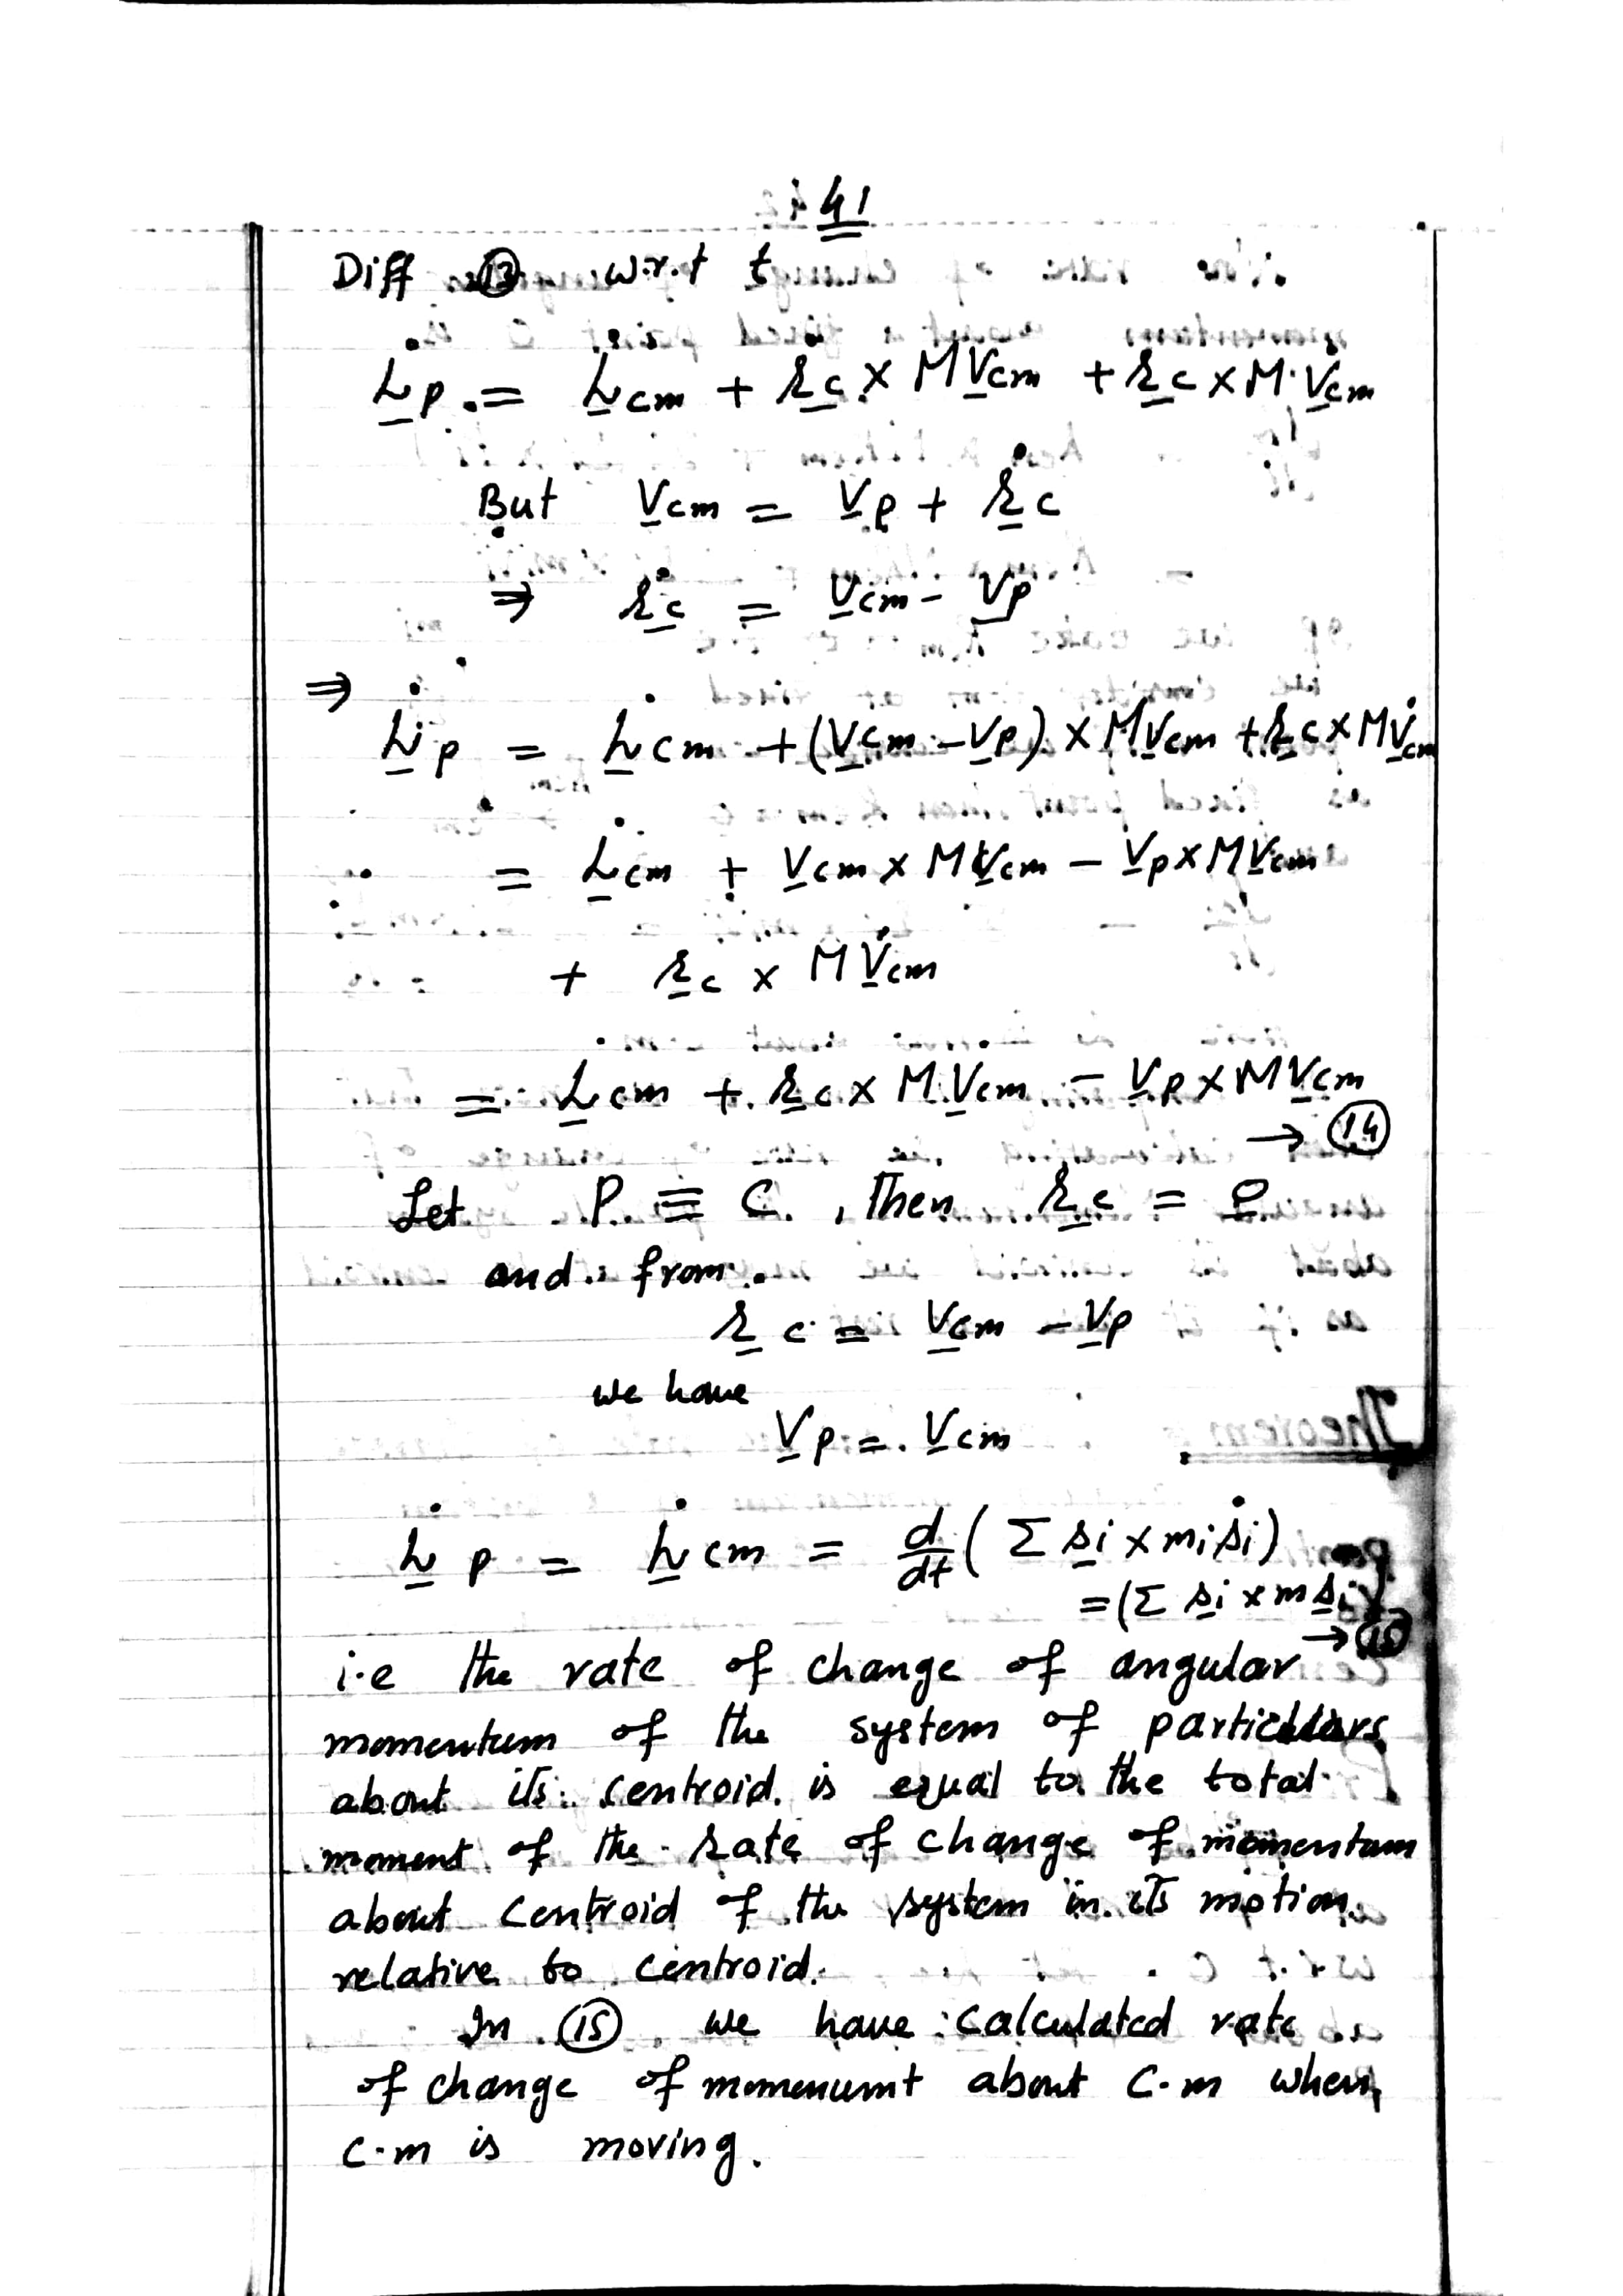 41
Diff (13) w.r.t t
L̲̇p = L̲̇cm + ṙ̲c × M V̲cm + r̲c × M V̲̇cm
But V̲cm = V̲p + ṙ̲c
⇒ ṙ̲c = V̲cm - V̲p
⇒
L̲̇p = L̲̇cm + (V̲cm - V̲p) × M V̲cm + r̲c × M V̲̇cm
= L̲̇cm + V̲cm × M V̲cm - V̲p × M V̲cm
+ r̲c × M V̲̇cm
= L̲̇cm + r̲c × M V̲cm - V̲p × M V̲cm
→ (14)
Let P ≡ C. , Then r̲c = 0̲
and from
r̲c = V̲cm - V̲p
we have
V̲p = V̲cm
L̲̇p = L̲̇cm = d/dt ( Σ s̲i × mi ṡi )
= (Σ s̲i × m s̲i)
→ (15)
i.e the rate of change of angular
momentum of the system of particulars
about its centroid is equal to the total
moment of the rate of change of momentum
about centroid of the system in its motion
relative to centroid.
In (15) we have calculated rate
of change of momenumt about C.m when
C.m is moving.